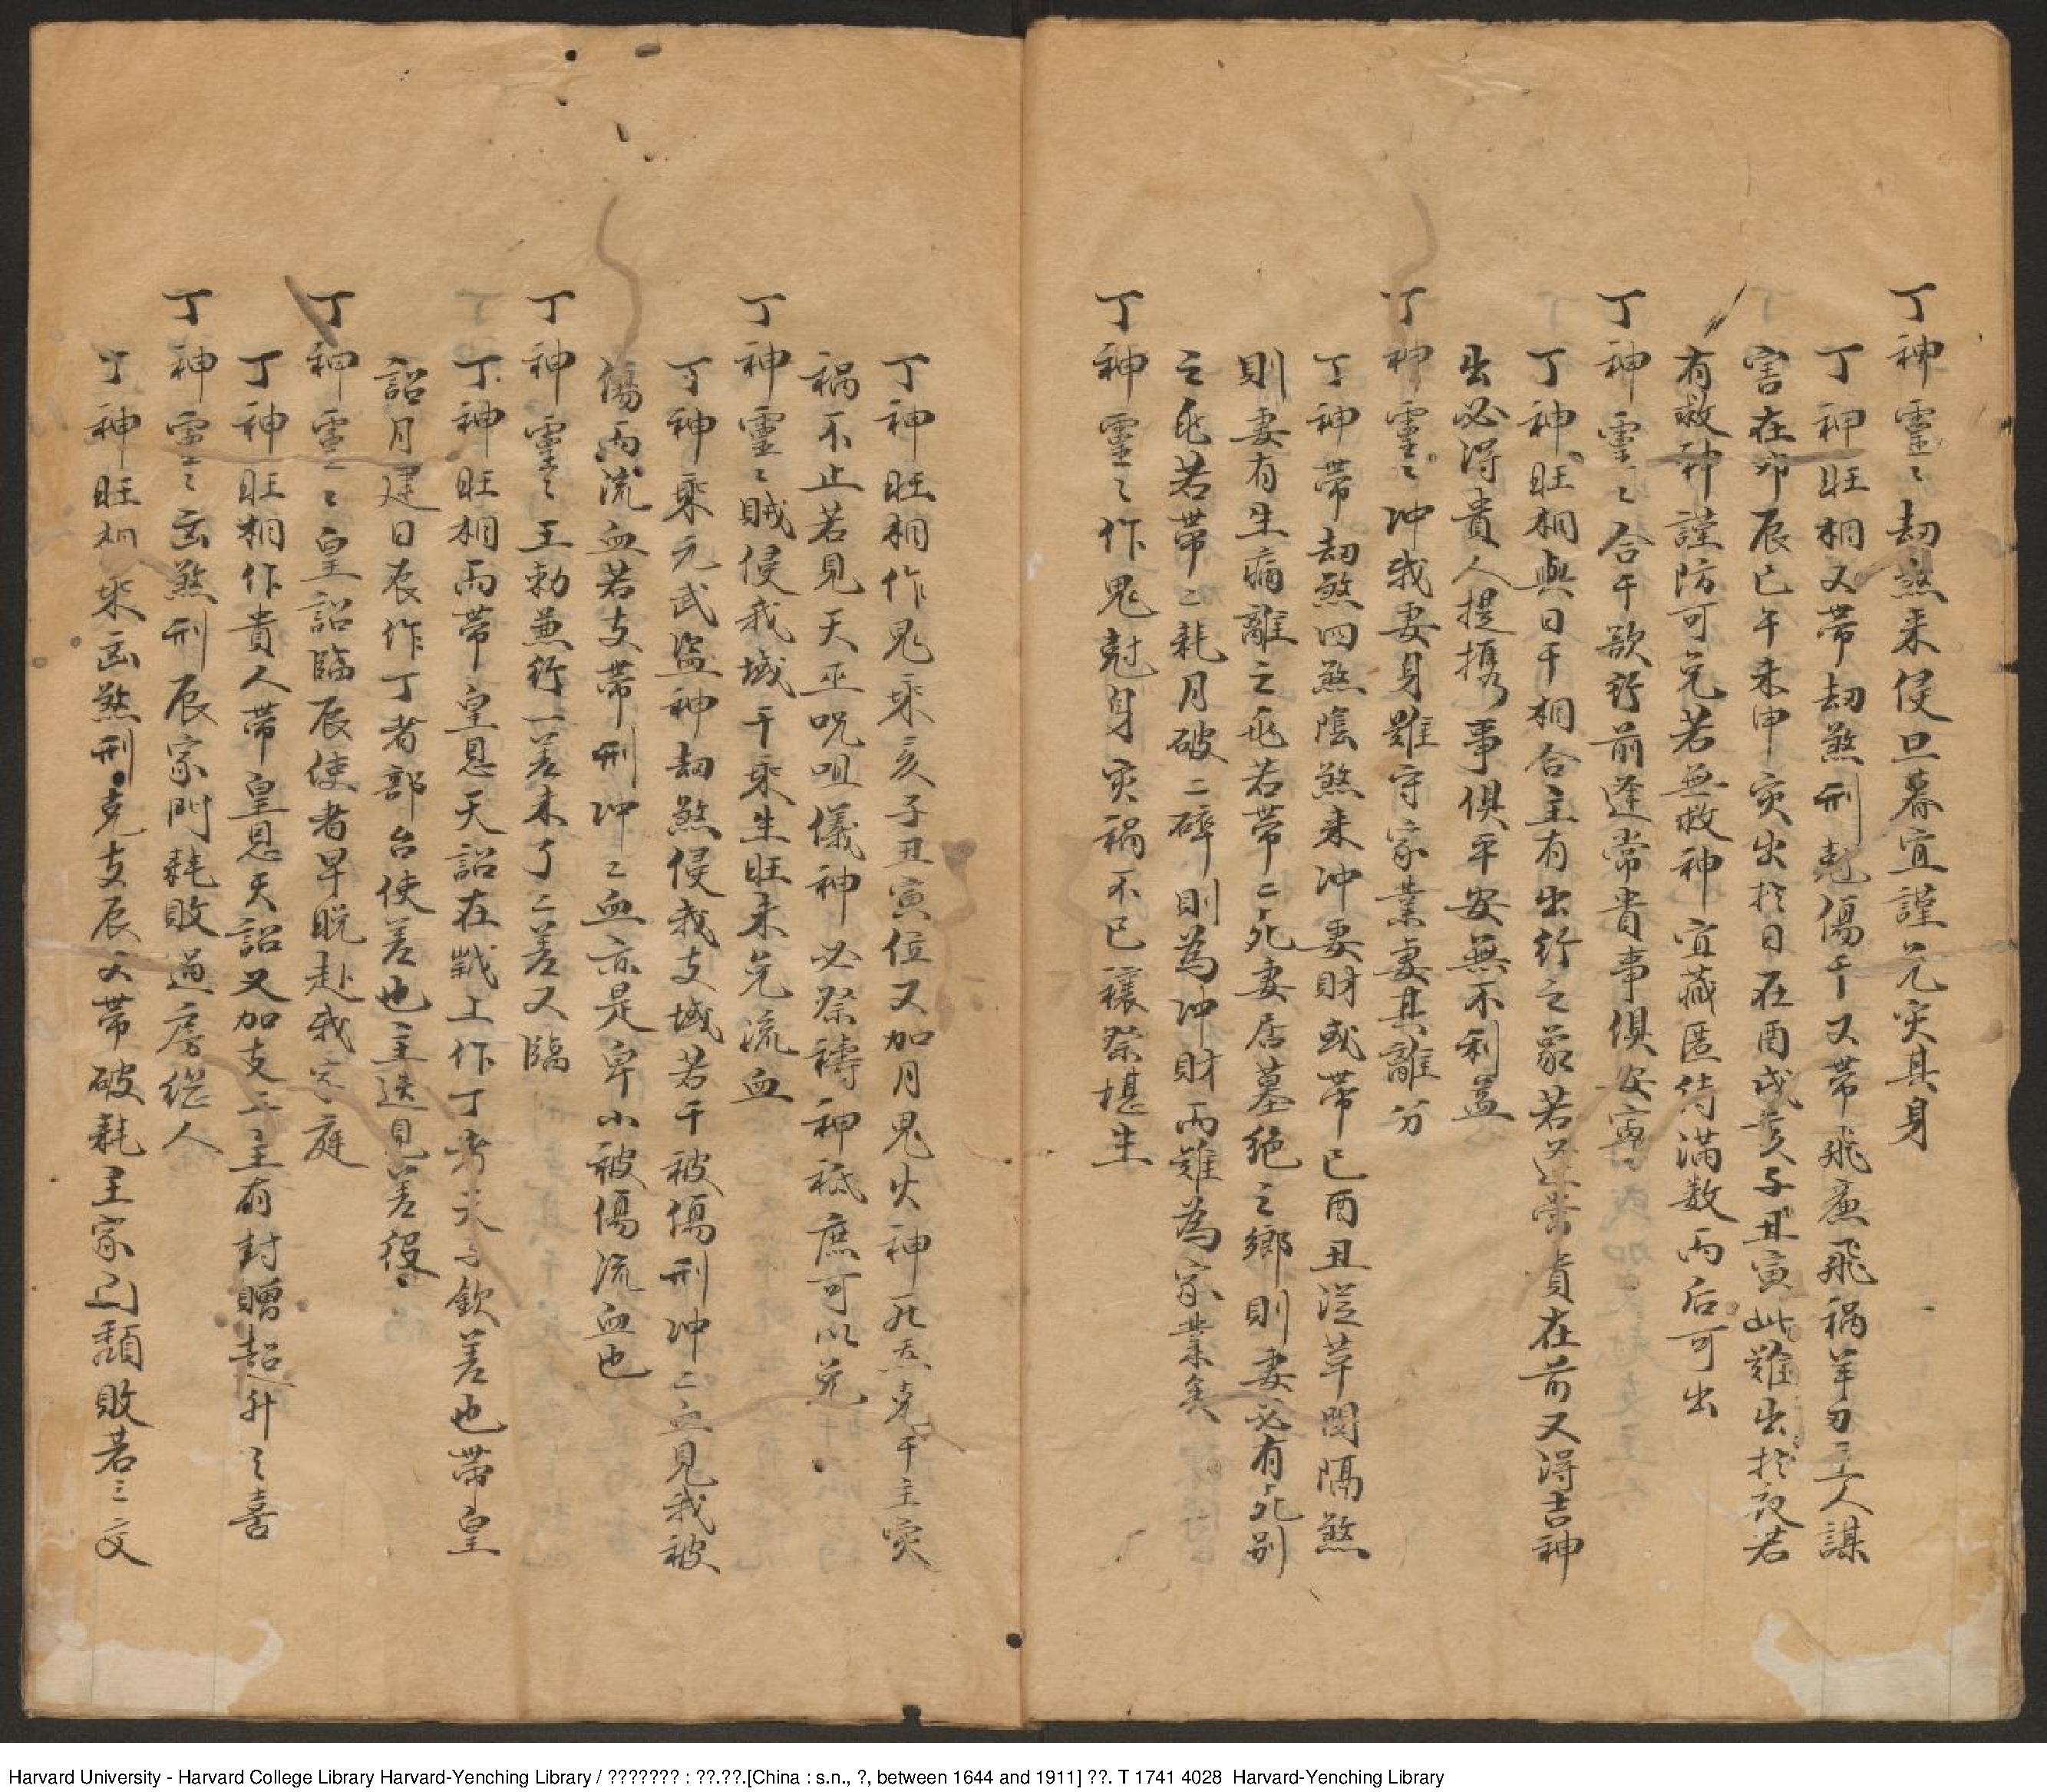 丁神靈〻劫煞来侵旦暮宜謹兇灾其身
丁神旺相又带劫煞刑尅傷干又带飛廉飛禍羊刃主人謀
害在卯辰巳午未申灾出扵日在酉戌亥子丑寅此難出扵夜若
有救神謹防可免若無救神宜藏匿待滿数而后可出
丁神靈〻合干欲行前逢常貴事俱安寧
丁神旺相與日干相合主有出行之象若逢常貴在前又得吉神
出必得貴人提携事俱平安無不利益
丁神靈〻冲我妻身難守家業妻其離分
丁神带劫煞四煞陰煞来冲妻財或带巳酉丑從革関隔煞
則妻有生痛離之兆若带二死妻居墓绝之鄉則妻必有死别
之兆若带二耗月破二碎則為冲財而難為家業矣
丁神靈〻作鬼尅身灾禍不已禳祭堪生
丁神旺相作鬼乘亥子丑寅位又加月鬼火神死炁克干主灾
禍不止若見天巫呪咀儀神必祭禱神祗庶可以免
丁神靈〻賊侵我域干乘生旺未免流血
丁神乘元武盗神劫煞侵我支域若干被傷刑冲二血見我被
傷而流血若支带刑冲〻血亦是卑小被傷流血也
丁神靈〻王勅兼行一差未了二差又臨
丁神旺相而带皇恩天詔在歲上作丁者天子欽差也带皇
詔月建日辰作丁者部台使差也主迭見差役
丁神靈〻皇詔臨辰使者早晚赴我家庭
丁神旺相作貴人带皇恩天詔又加支上主有封贈超升之喜
丁神靈〻凶煞刑辰家門耗敗過房继人
丁神旺相乘凶煞刑克支辰又带破耗主家门頽敗若三交